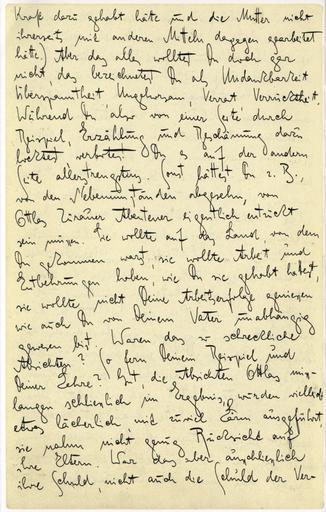 Kraft dazu gehabt hätte und die Mutter nicht
ihrerseits mit anderen Mitteln dagegen gearbeitet
hätte) Aber das alles wolltest Du doch gar
nicht, das bezeichnetest Du als Undankbarkeit
Überspanntheit Ungehorsam, Verrat Verrücktheit.
Während Du also von einer Seite durch
Beispiel, Erzählung und Beschämung dazu
locktest verbotest Du es auf der andern
Seite allerstrengstens. Sonst hättest Du z. B.,
von den Nebenumständen abgesehn, von
Ottlas Zürauer Abenteuer eigentlich entzückt
sein müssen. Sie wollte auf das Land von dem
Du gekommen warst, sie wollte Arbeit und
Entbehrungen haben, wie Du sie gehabt hattest,
sie wollte nicht Deine Arbeitserfolge geniessen
wie auch Du von Deinem Vater unabhängig
gewesen bist. Waren das so schreckliche
Absichten? So fern Deinem Beispiel und
Deiner Lehre? Gut, die Absichten Ottlas miss-
langen schliesslich im Ergebnis, wurden vielleicht
etwas lächerlich mit zuviel Lärm ausgeführt
sie nahm nicht genug Rücksicht auf
ihre Eltern. War das aber ausschliesslich
ihre Schuld, nicht auch die Schuld der Ver-